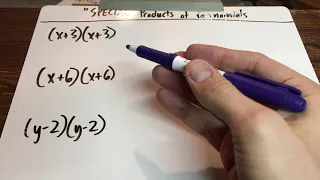 "SPECIAL Products of Polynomials
(x+3)(x+3)
(x+6)(x+6)
(y-2)(y-2)